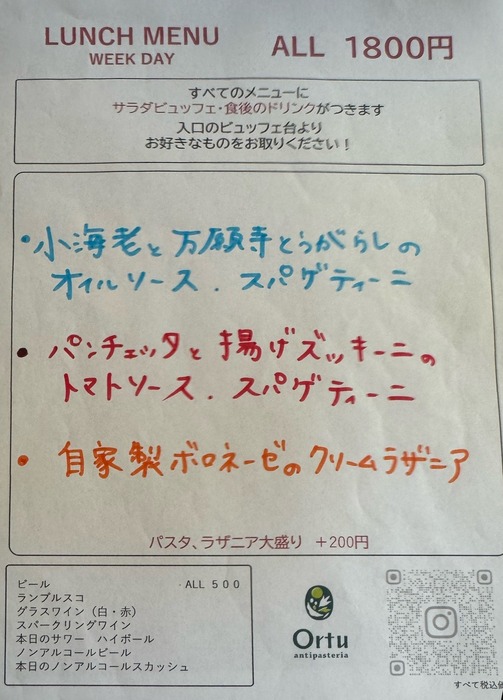 LUNCH MENU
WEEK DAY
ALL 1800円
すべてのメニューに
サラダビュッフェ・食後のドリンクがつきます
入口のビュッフェ台より
お好きなものをお取りください!
・小海老と万願寺とうがらしの
オイルソース . スパゲティーニ
・パンチェッタと揚げズッキーニの
トマトソース . スパゲティーニ
・自家製ボロネーゼのクリームラザニア
パスタ、ラザニア大盛り +200円
ビール ALL 500
ランブルスコ
グラスワイン(白・赤)
スパークリングワイン
本日のサワー ハイボール
ノンアルコールビール
本日のノンアルコールスカッシュ
Ortu
antipasteria
すべて税込